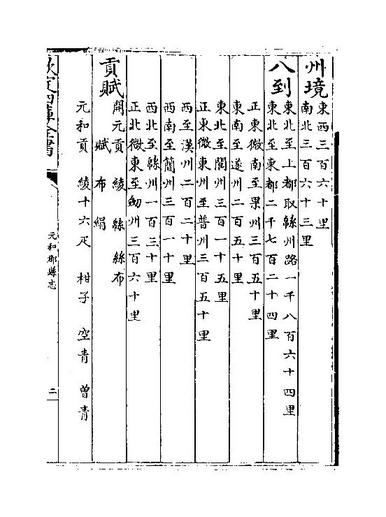 州境 東西三百六十里
南北三百六十三里
八到 東北至上都取緜州路一千八百六十四里
東北至東都二千七百二十四里
正東微南至果州三百五十里
東南至遂州二百五十里
東北至閬州三百一十五里
正東微東州至普州三百五十里
西至漢州二百二十里
西南至簡州三百一十里
西北至緜州一百三十里
正北微東至劒州三百六十里
貢賦 開元貢 綾 緜 絲布
賦 布 絹
元和貢 綾十六疋 柑子 空青 曾青
欽定四庫全書
元和郡縣志
二